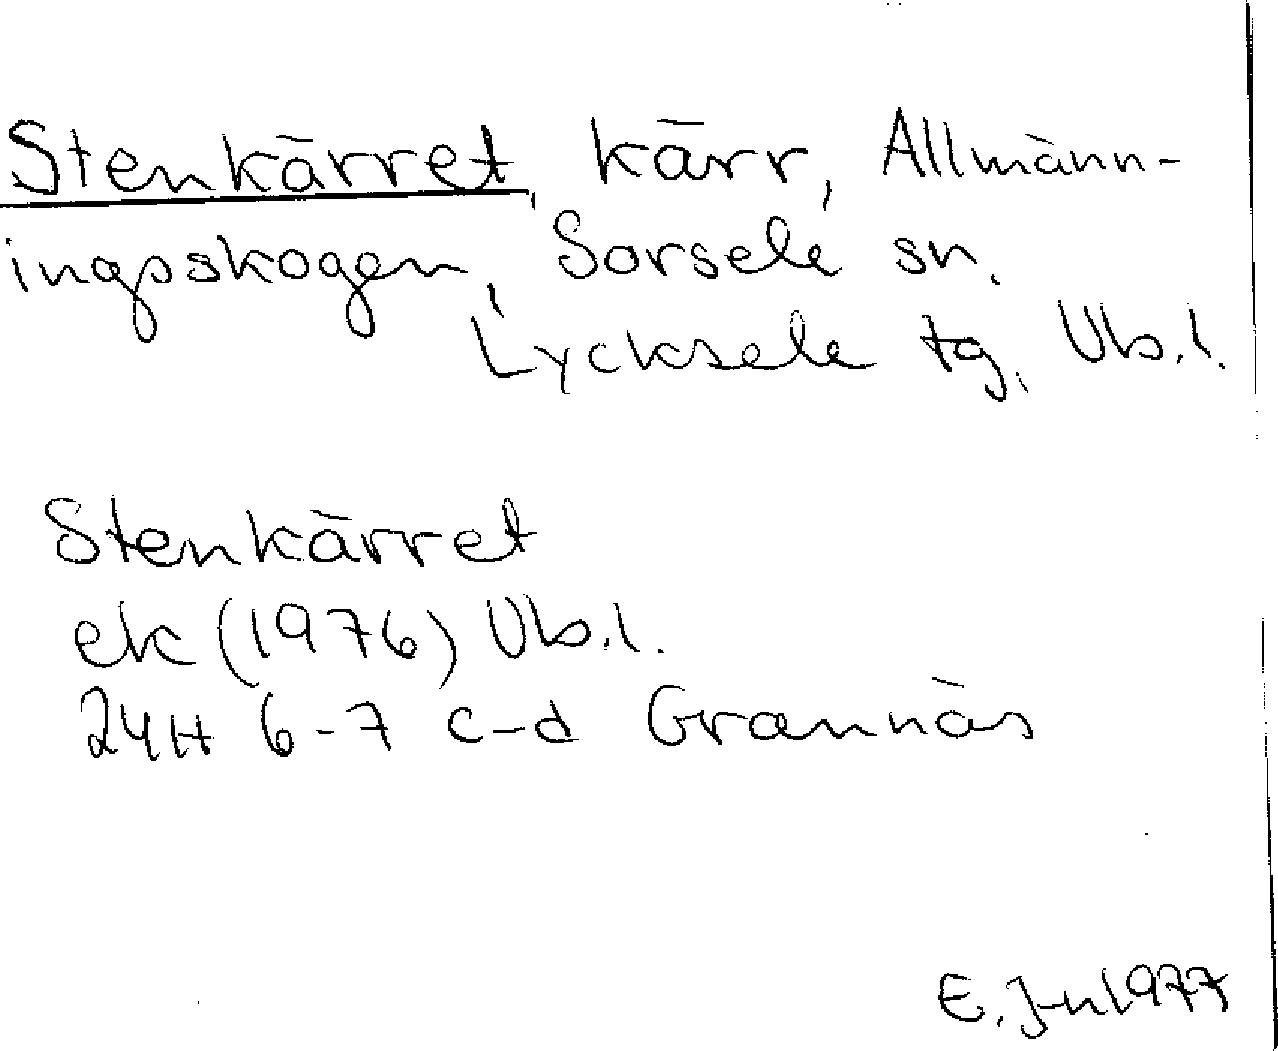 Stenkärret, kärr, Allmänn-
ingsskogen, Sorsele sn.
Lycksele tg. Vb.l.
Stenkärret
ek (1976) Vb.l.
24H 6-7 c-d Grannäs
E. J-n 1977